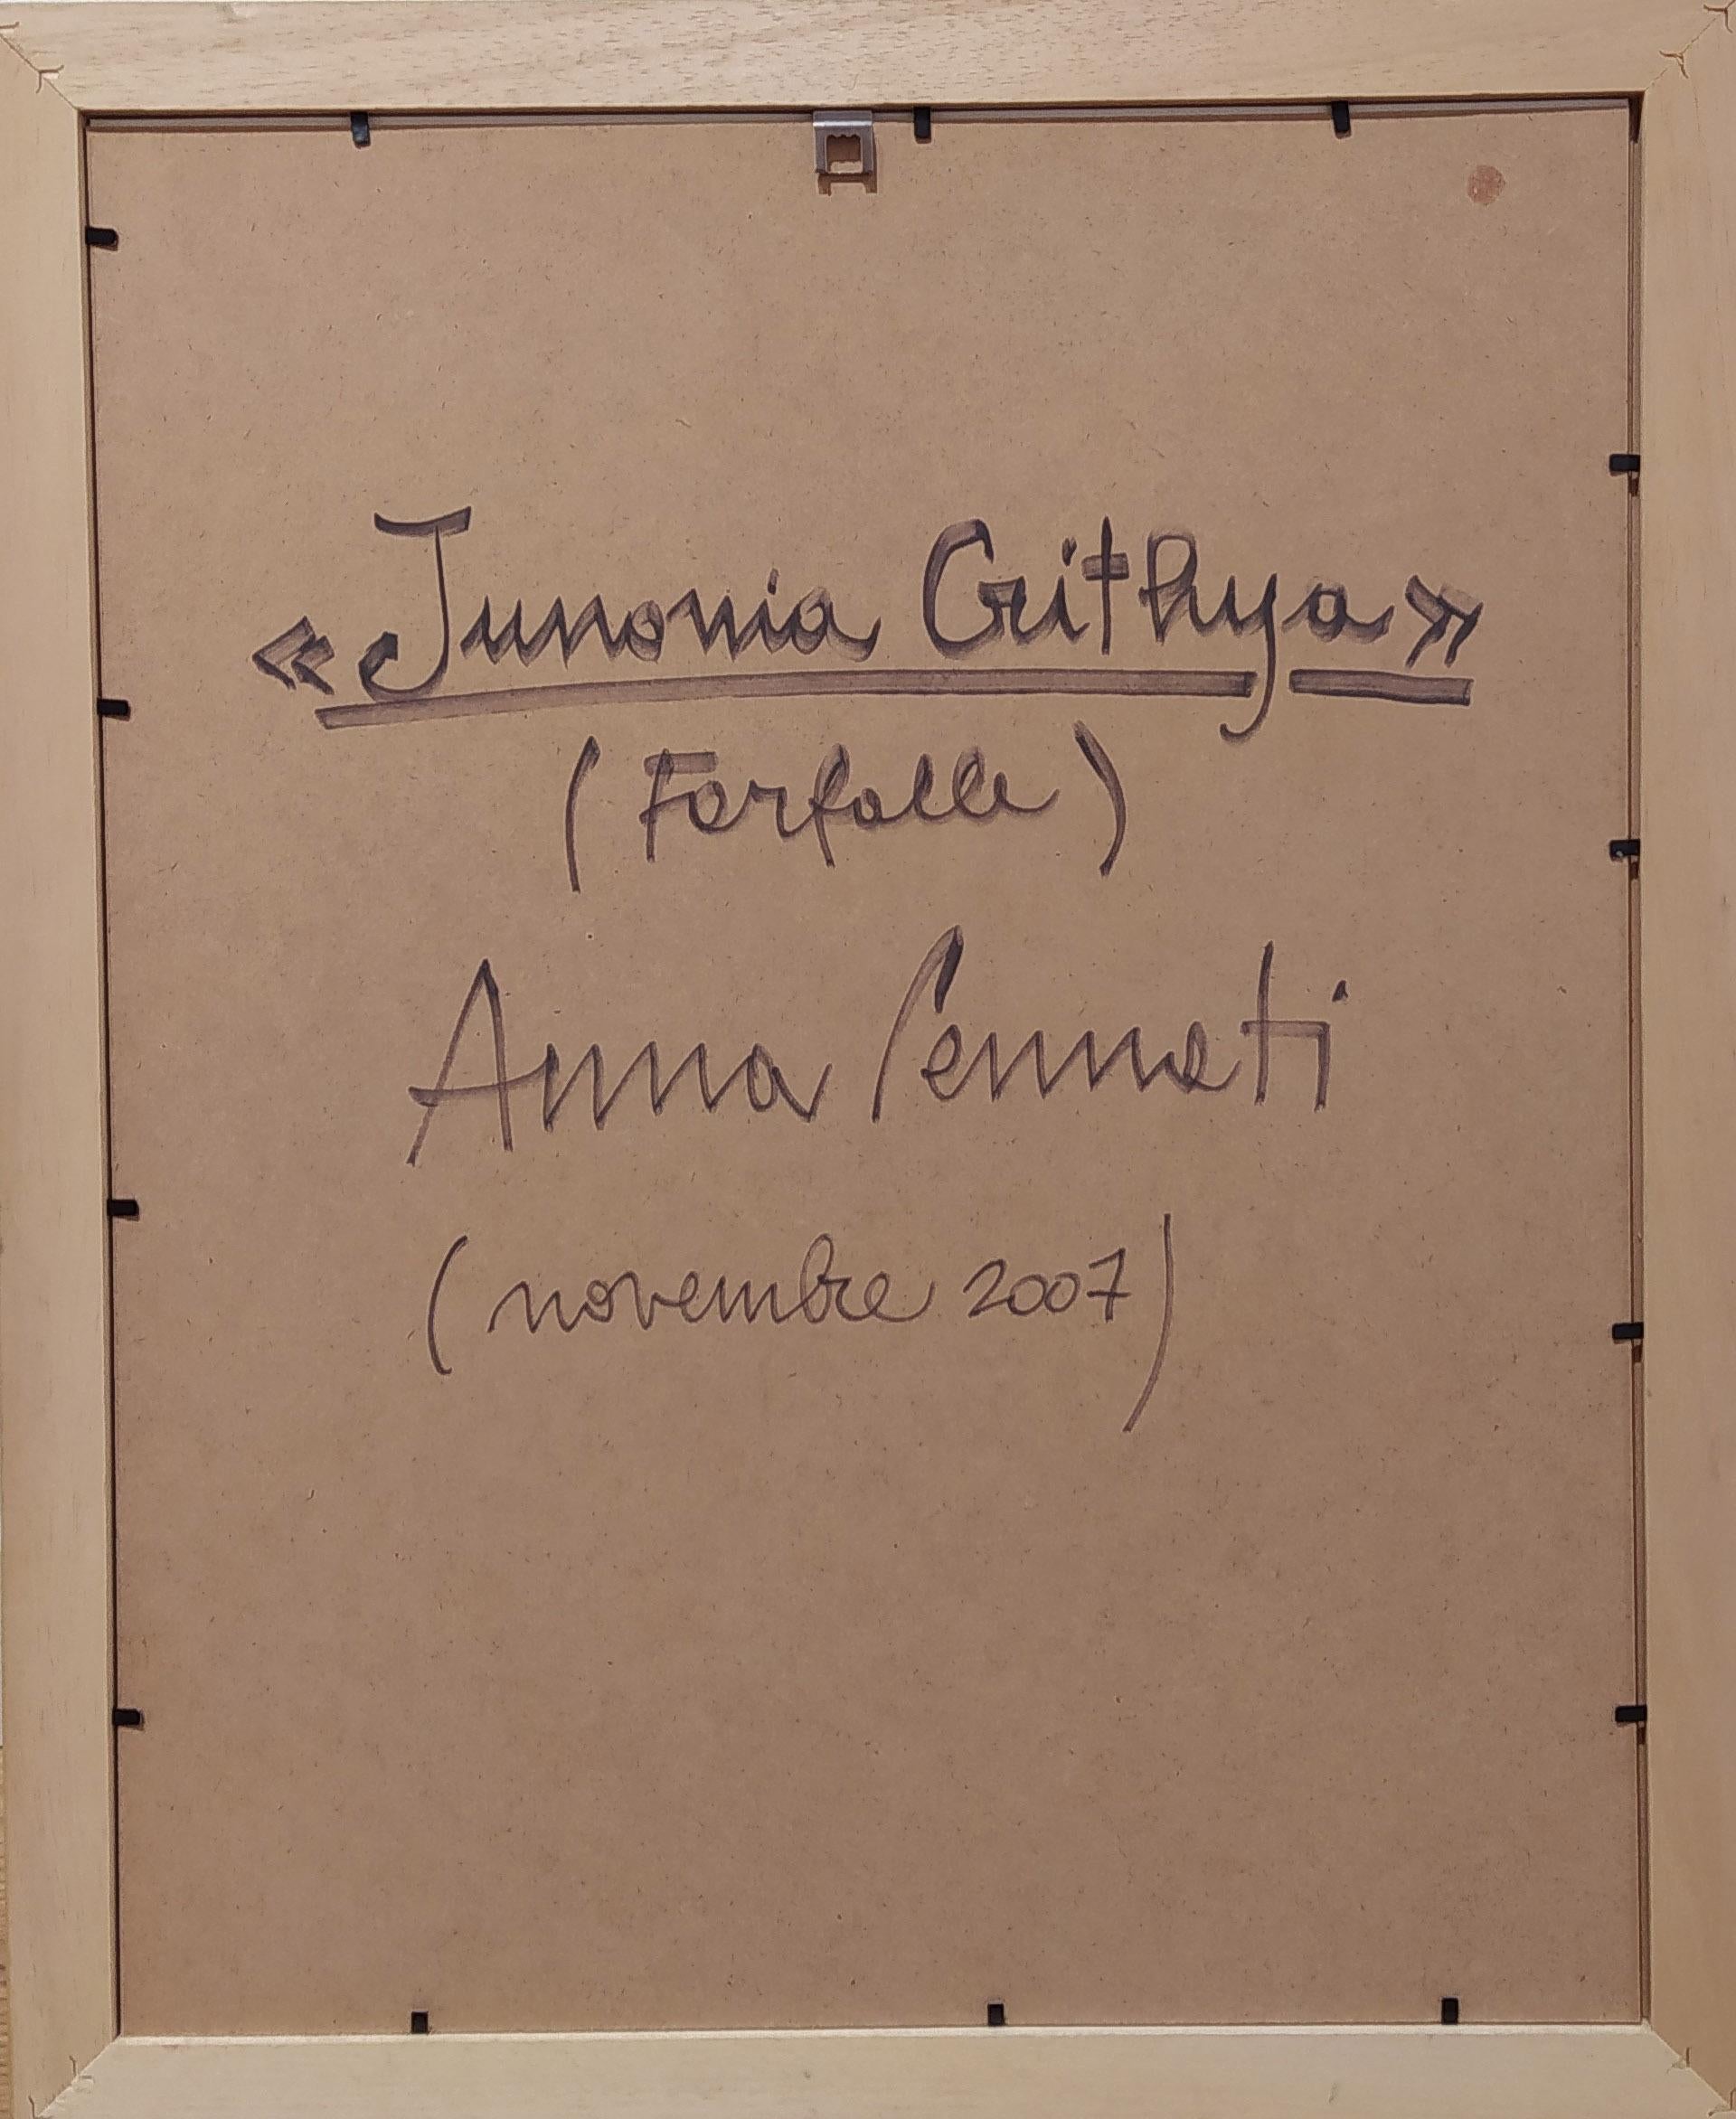 «Junonia Crithya»
(Farfalle)
Anna Pennati
(novembre 2007)